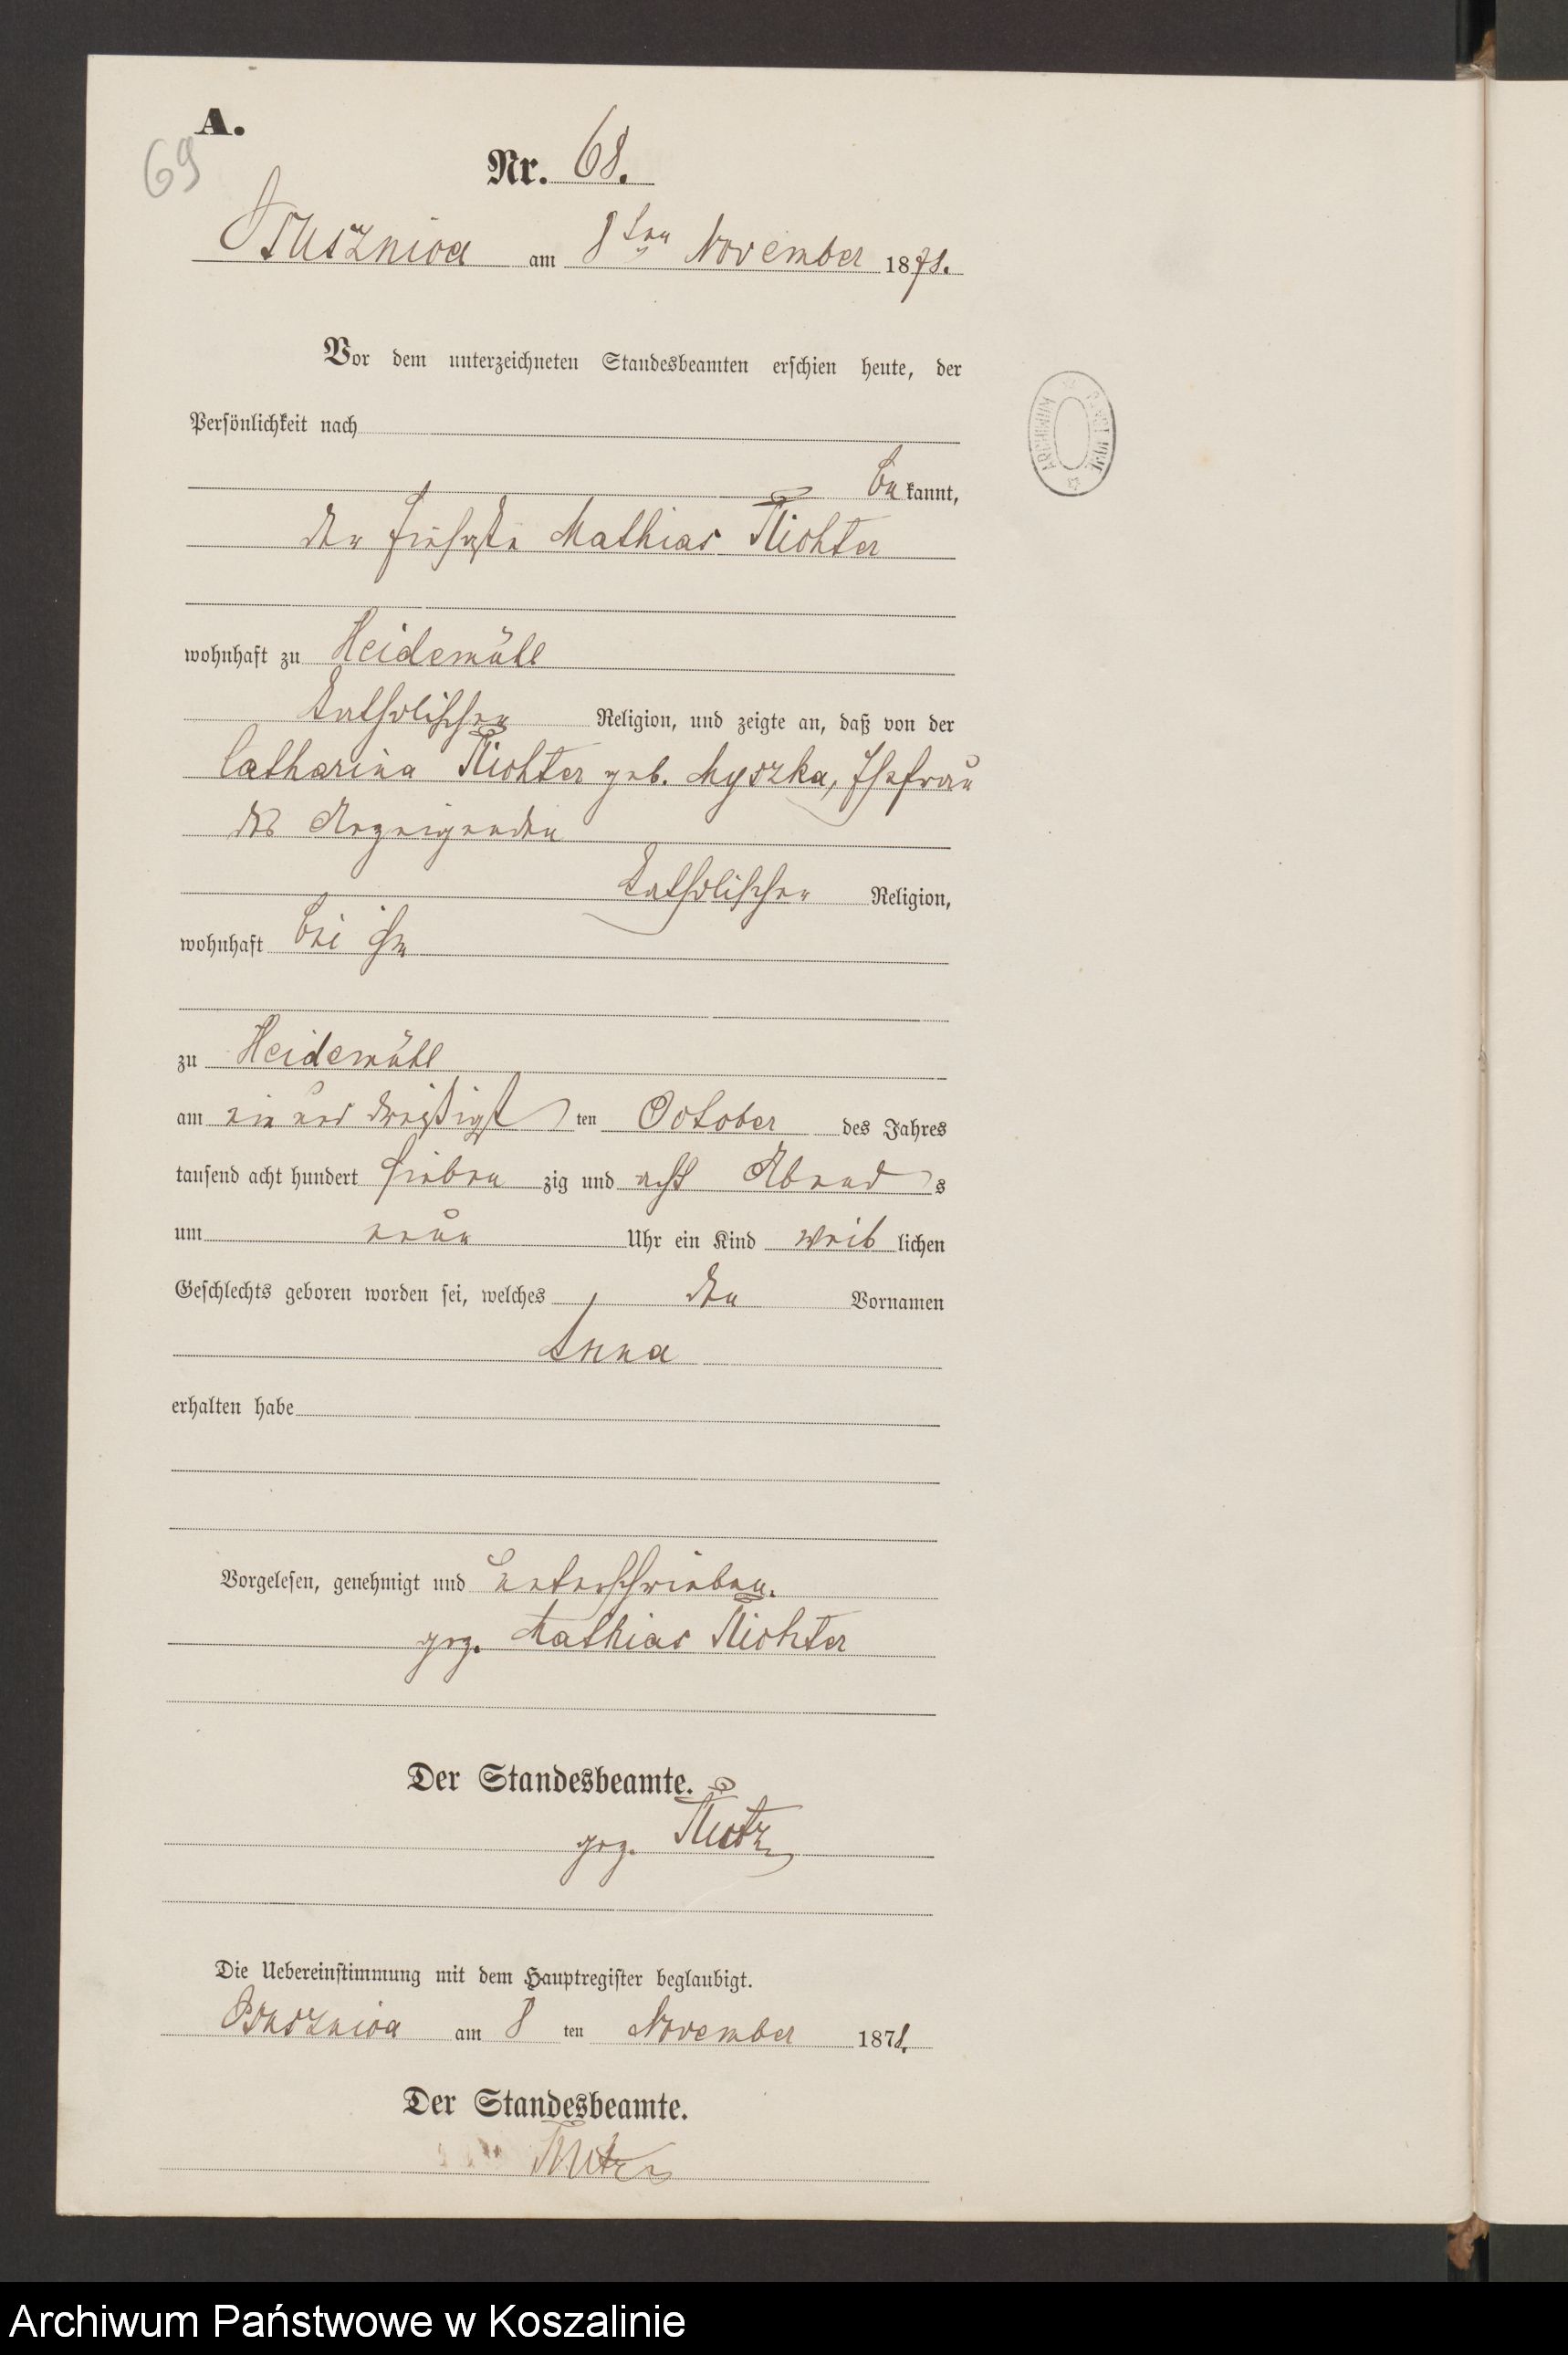 A.
69
Nr. 68.
am 8ten November 1878.
Vor dem unterzeichneten Standesbeamten erschien heute, der
Persönlichkeit nach
be kannt,
der Mathias Richter
wohnhaft zu Heidemühl
katholischer Religion, und zeigte an, daß von der
Catharina Richter geb. Myszka, Ehefrau
des Anzeigenden
katholischer Religion,
wohnhaft bei ihm
zu Heidemühl
am ein und dreißigst ten October des Jahres
tausend acht hundert sieben zig und acht Abend s
um neun Uhr ein Kind weib lichen
Geschlechts geboren worden sei, welches den Vornamen
Anna
erhalten habe
Vorgelesen, genehmigt und unterschrieben.
gez. Mathias Richter
Der Standesbeamte.
gez.
Die Uebereinstimmung mit dem Hauptregister beglaubigt.
am 8 ten November 1878.
Der Standesbeamte.
ARCHIWUM
Archiwum Państwowe w Koszalinie